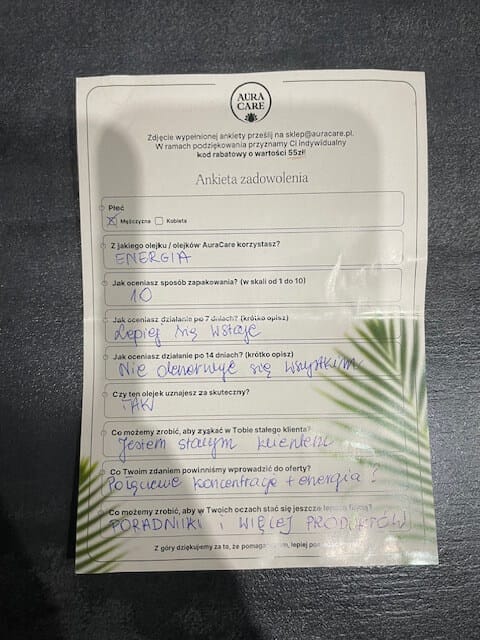 AURA
CARE
Zdjęcie wypełnionej ankiety prześlij na sklep@auracare.pl.
W ramach podziękowania przyznamy Ci indywidualny
kod rabatowy o wartości 55zł!
Ankieta zadowolenia
Płeć
Mężczyzna Kobieta
Z jakiego olejku / olejków AuraCare korzystasz?
ENERGIA
Jak oceniasz sposób zapakowania? (w skali od 1 do 10)
10
Jak oceniasz działanie po 7 dniach? (krótko opisz)
Lepiej się wstaje
Jak oceniasz działanie po 14 dniach? (krótko opisz)
Nie denerwuję się wszystkim
Czy ten olejek uznajesz za skuteczny?
TAK
Co możemy zrobić, aby zyskać w Tobie stałego klienta?
Jestem stałym klientem
Co Twoim zdaniem powinniśmy wprowadzić do oferty?
koncentracje + energia !
Co możemy zrobić, aby w Twoich oczach stać się jeszcze lepszą firmą?
PORADNIKI i WIĘCEJ PRODUKTÓW
Z góry dziękujemy za to, że pomagasz nam, lepiej